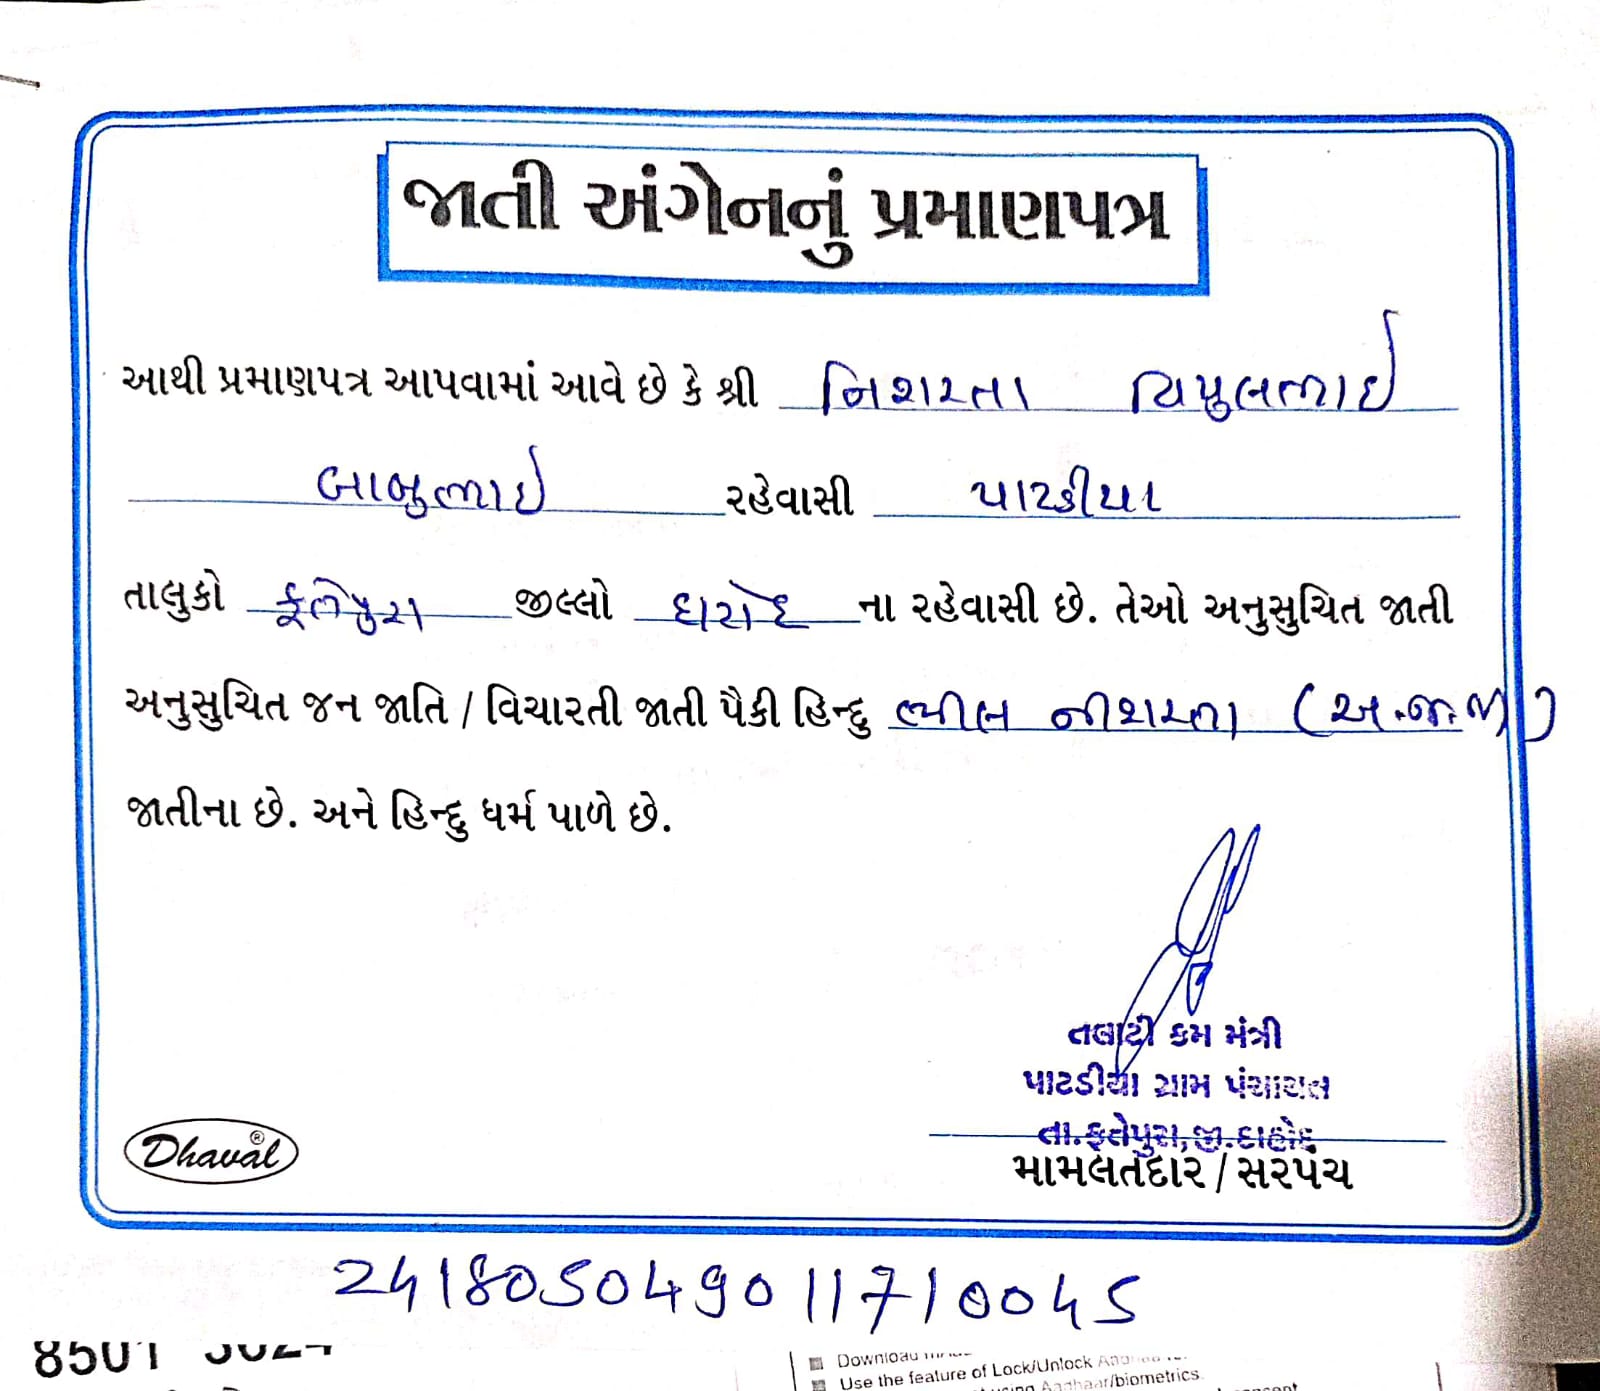 જાતી અંગેનનું પ્રમાણપત્ર
આથી પ્રમાણપત્ર આપવામાં આવે છે કે શ્રી નિશરતા વિપુલભાઇ
બાબુભાઇ રહેવાસી પાટડીયા
તાલુકો ફતેપુરા જીલ્લો દાહોદ ના રહેવાસી છે. તેઓ અનુસુચિત જાતી
અનુસુચિત જન જાતિ / વિચારતી જાતી પૈકી હિન્દુ ભીલ નીશરતા (અ.જ.જા)
જાતીના છે. અને હિન્દુ ધર્મ પાળે છે.
તલાટી કમ મંત્રી
પાટડીયા ગ્રામ પંચાયત
તા.ફતેપુરા,જી.દાહોદ
મામલતદાર / સરપંચ
Dhaval®
241805049011710045
8501
Download
Use the feature of Lock/Unlock
Aadhaar/biometrics.